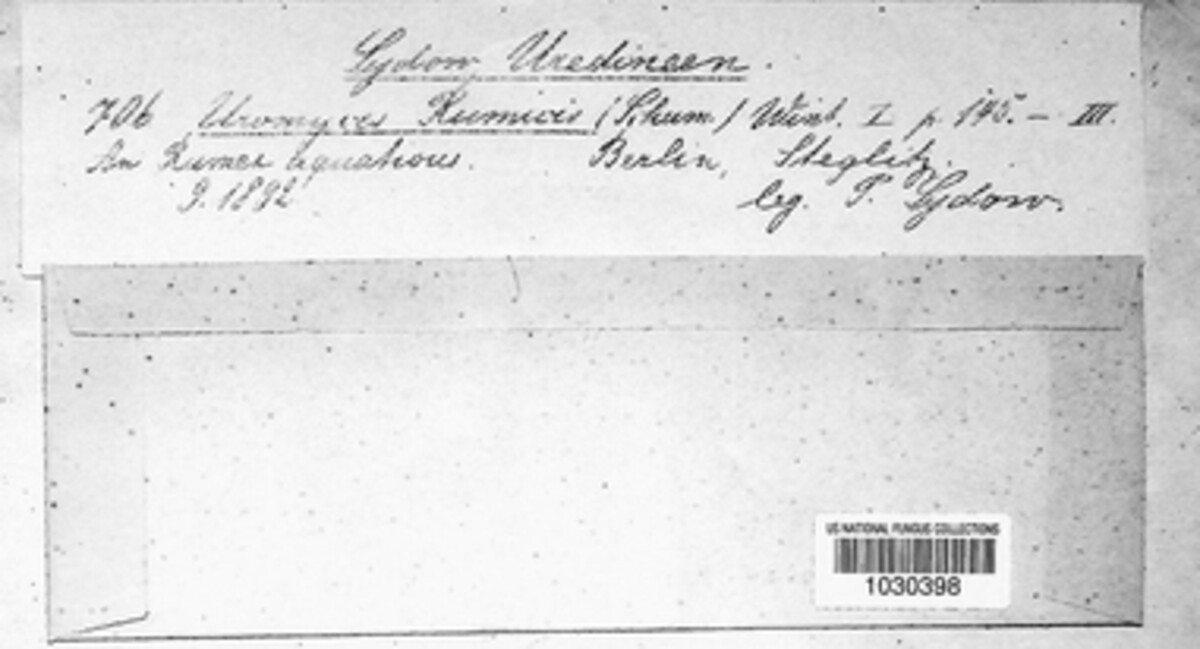 Sydow Uredineen.
706 Uromyces Rumicis (Schum.) Wint. I p. 145. – III.
An Rumex aquaticus. Berlin, Steglitz.
9. 1892 leg. P. Sydow.
US NATIONAL FUNGUS COLLECTIONS
1030398